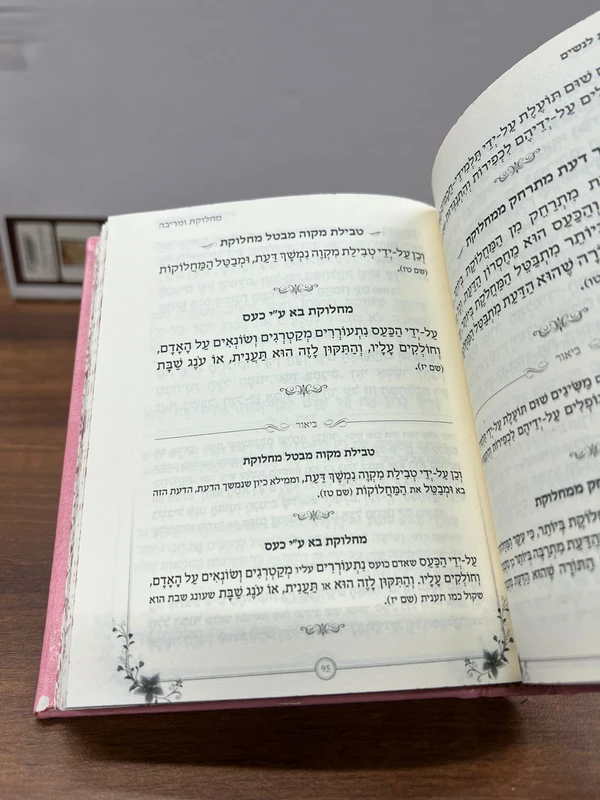 מחלוקת ומריבה
טבילת מקוה מבטל מחלוקת
וְכֵן עַל-יְדֵי טְבִילַת מִקְוֶה נִמְשָׁךְ דַּעַת, וּמְבַטֵּל הַמַּחֲלוֹקוֹת
(שם טז).
מחלוקת בא ע״י כעס
עַל-יְדֵי הַכַּעַס נִתְעוֹרְרִים מְקַטְרְגִים וְשׂוֹנְאִים עַל הָאָדָם,
וְחוֹלְקִים עָלָיו, וְהַתִּקּוּן לָזֶה הוּא תַּעֲנִית, אוֹ עֹנֶג שַׁבָּת
(שם יז).
ביאור
טבילת מקוה מבטל מחלוקת
וְכֵן עַל-יְדֵי טְבִילַת מִקְוֶה נִמְשָׁךְ דַּעַת, וממילא כיון שנמשך הדעת, הדעת הזה
בא וּמְבַטֵּל את הַמַּחֲלוֹקוֹת (שם טז).
מחלוקת בא ע״י כעס
עַל-יְדֵי הַכַּעַס שאדם כועס נִתְעוֹרְרִים עליו מְקַטְרְגִים וְשׂוֹנְאִים עַל הָאָדָם,
וְחוֹלְקִים עָלָיו, וְהַתִּקּוּן לָזֶה הוּא או תַּעֲנִית, אוֹ עֹנֶג שַׁבָּת שעונג שבת הוא
שקול כמו תענית (שם יז).
95
לנשים
שׁוּם תּוֹעֶלֶת עַל-יְדֵי תַּלְמִידֵי-
עַל-יְדֵיהֶם לִכְפִירוֹת
דעת מתרחק ממחלוקת
מִתְרַחֵק מִן הַמַּחֲלוֹקֶת
וְהַכַּעַס הוּא מֵחֶסְרוֹן הַדַּעַת
בְּיוֹתֵר מִתְבַּטֵּל הַמַּחֲלֹקֶת
שֶׁהוּא הַדַּעַת מִתְבַּטֵּל
טו).
ביאור
מַשִּׂיגִים שׁוּם תּוֹעֶלֶת עַל-יְדֵי
נוֹפְלִים עַל-יְדֵיהֶם לִכְפִירוֹת
ממחלוקת
בְּיוֹתֵר, כי עיקר
הַדַּעַת מִתְרַבֶּה
הַתּוֹרָה שֶׁהוּא הַדַּעַת